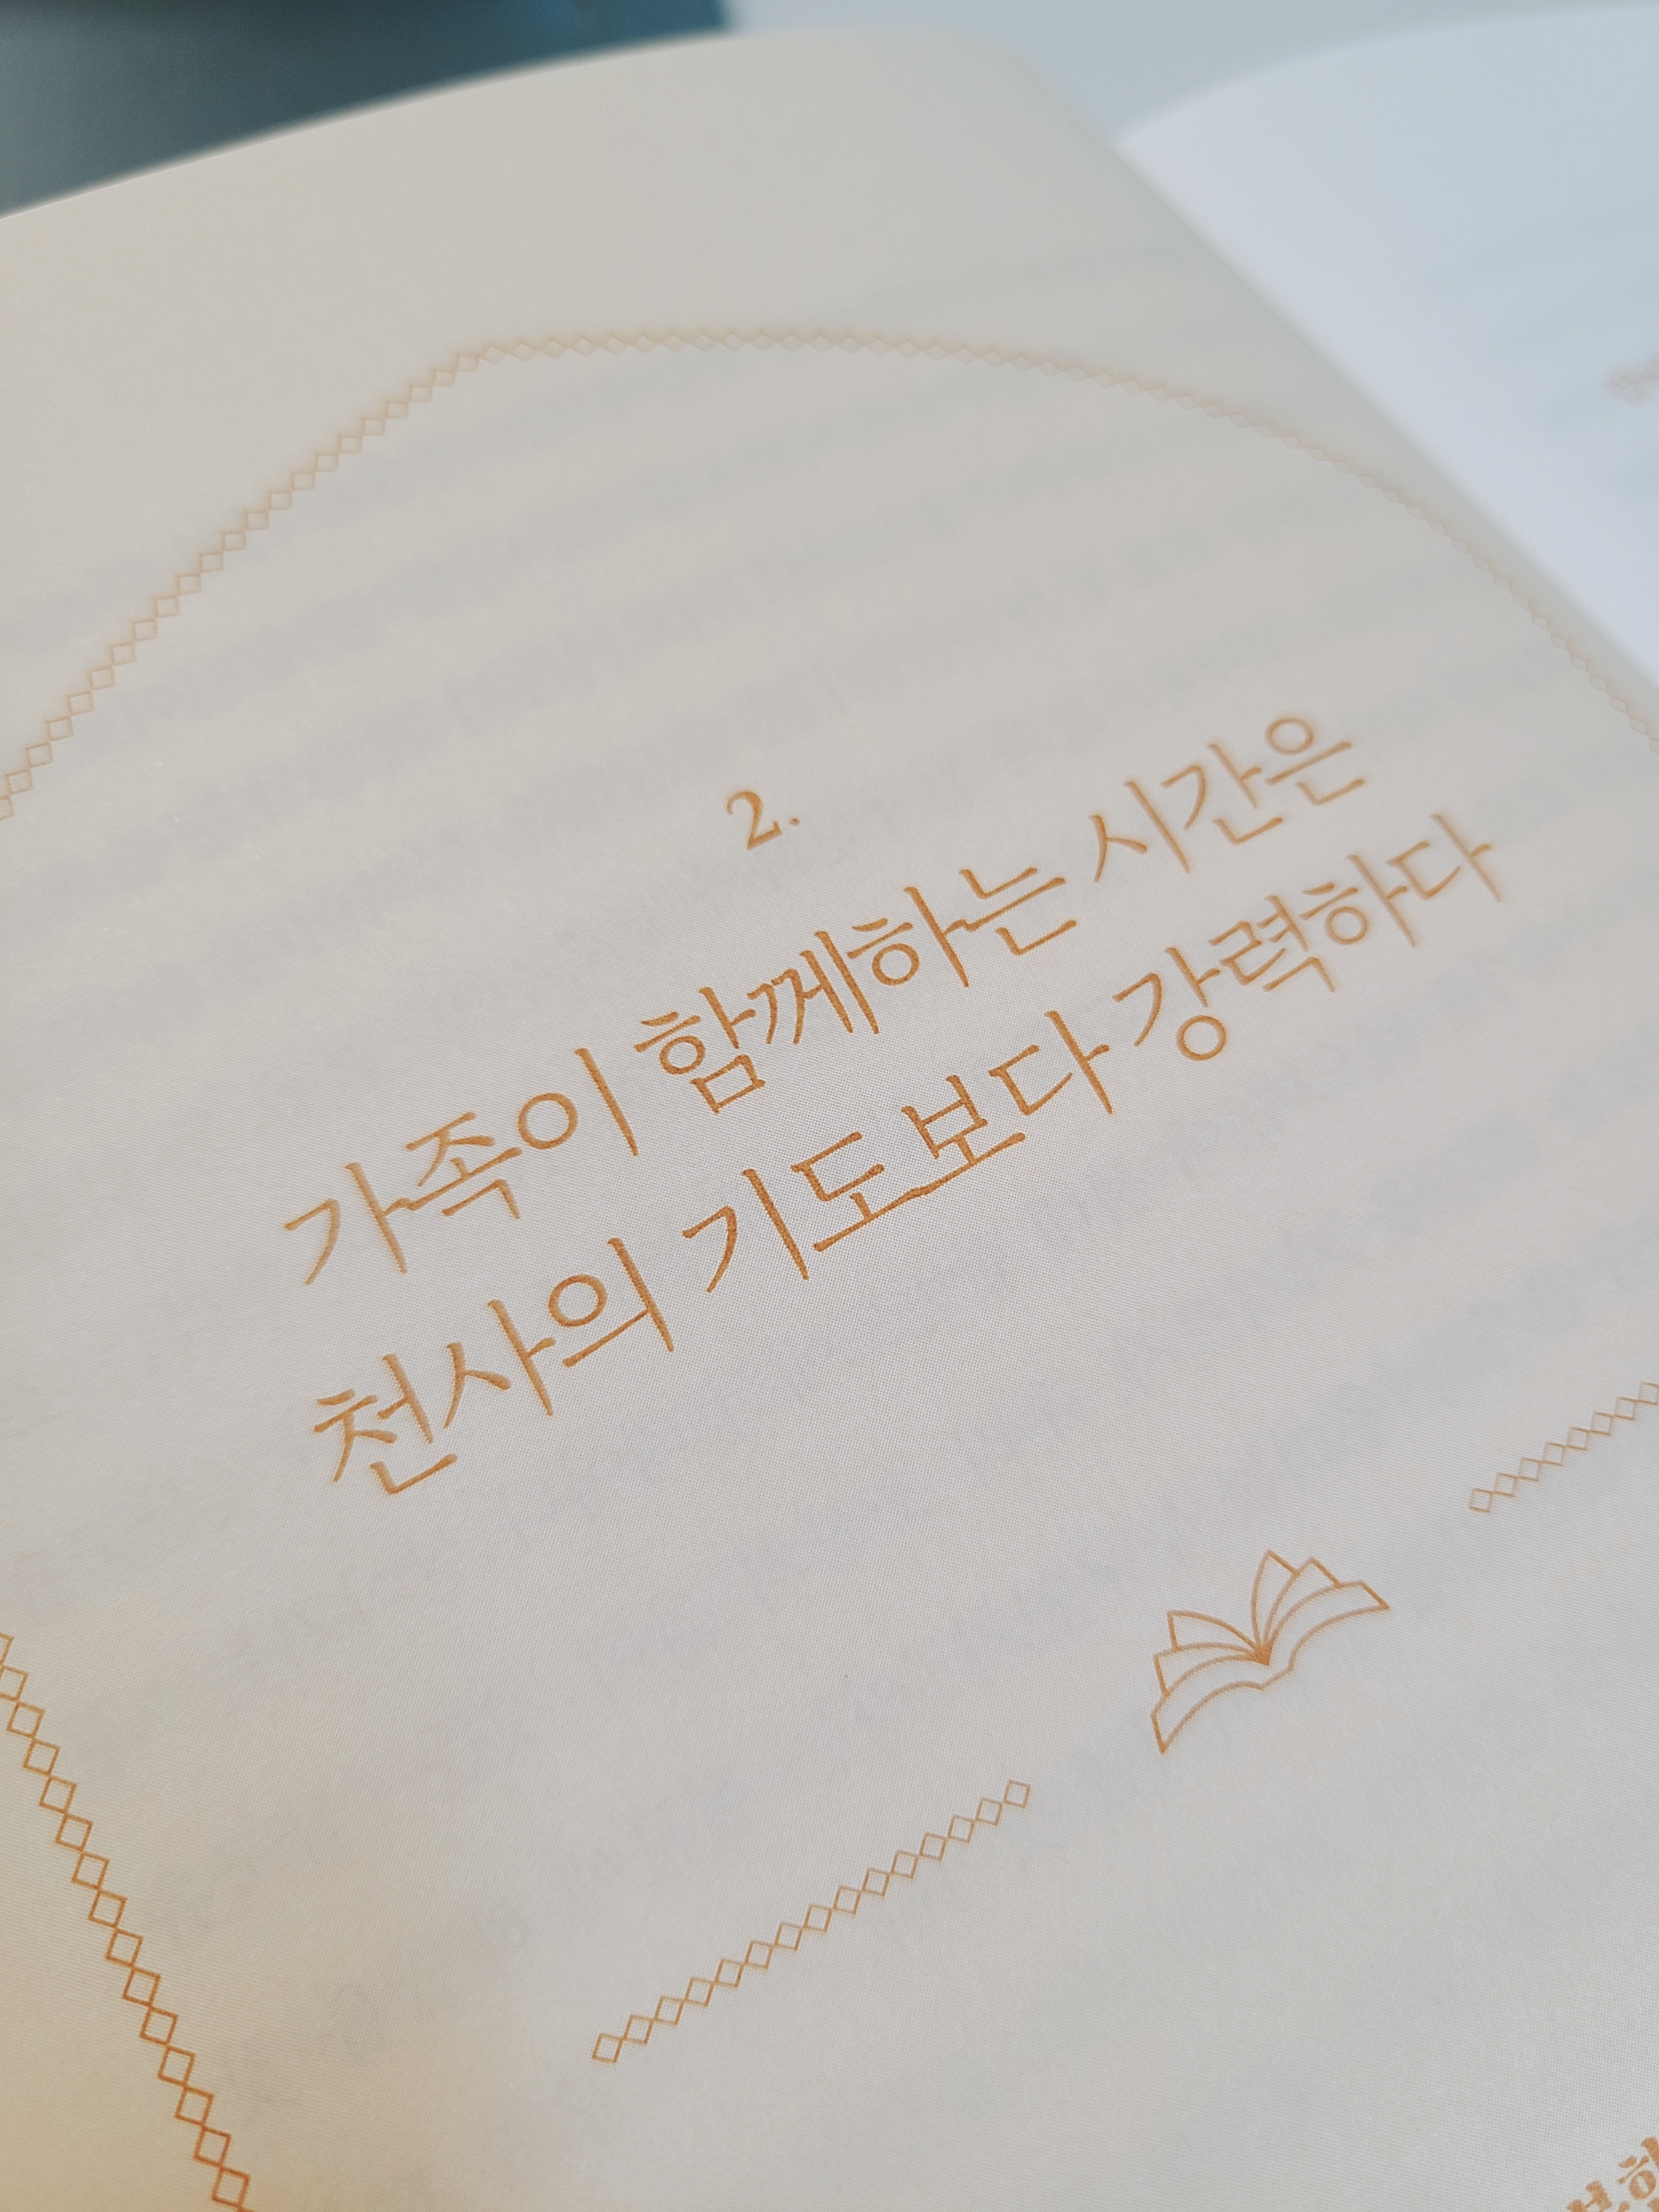 2.
가족이 함께하는 시간은
천사의 기도보다 강력하다